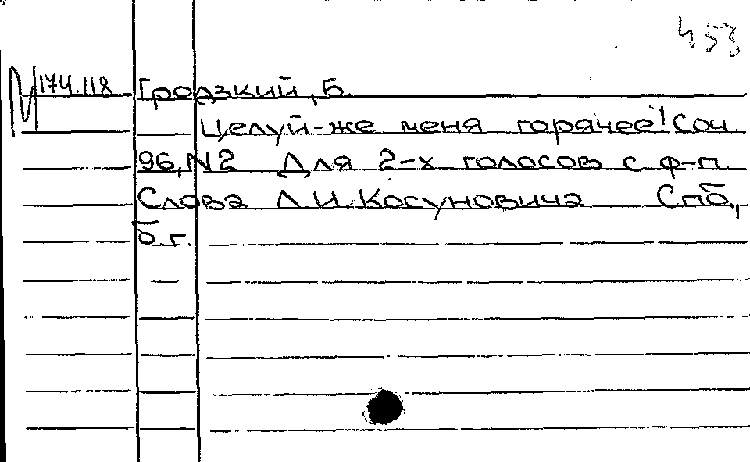 453
М 174.118 Гродзкий, Б.
Целуй-же меня горячее! Соч
96, N2 Для 2-х голосов с ф-п.
Слова Л.И.Косуновича Спб.,
б.г.